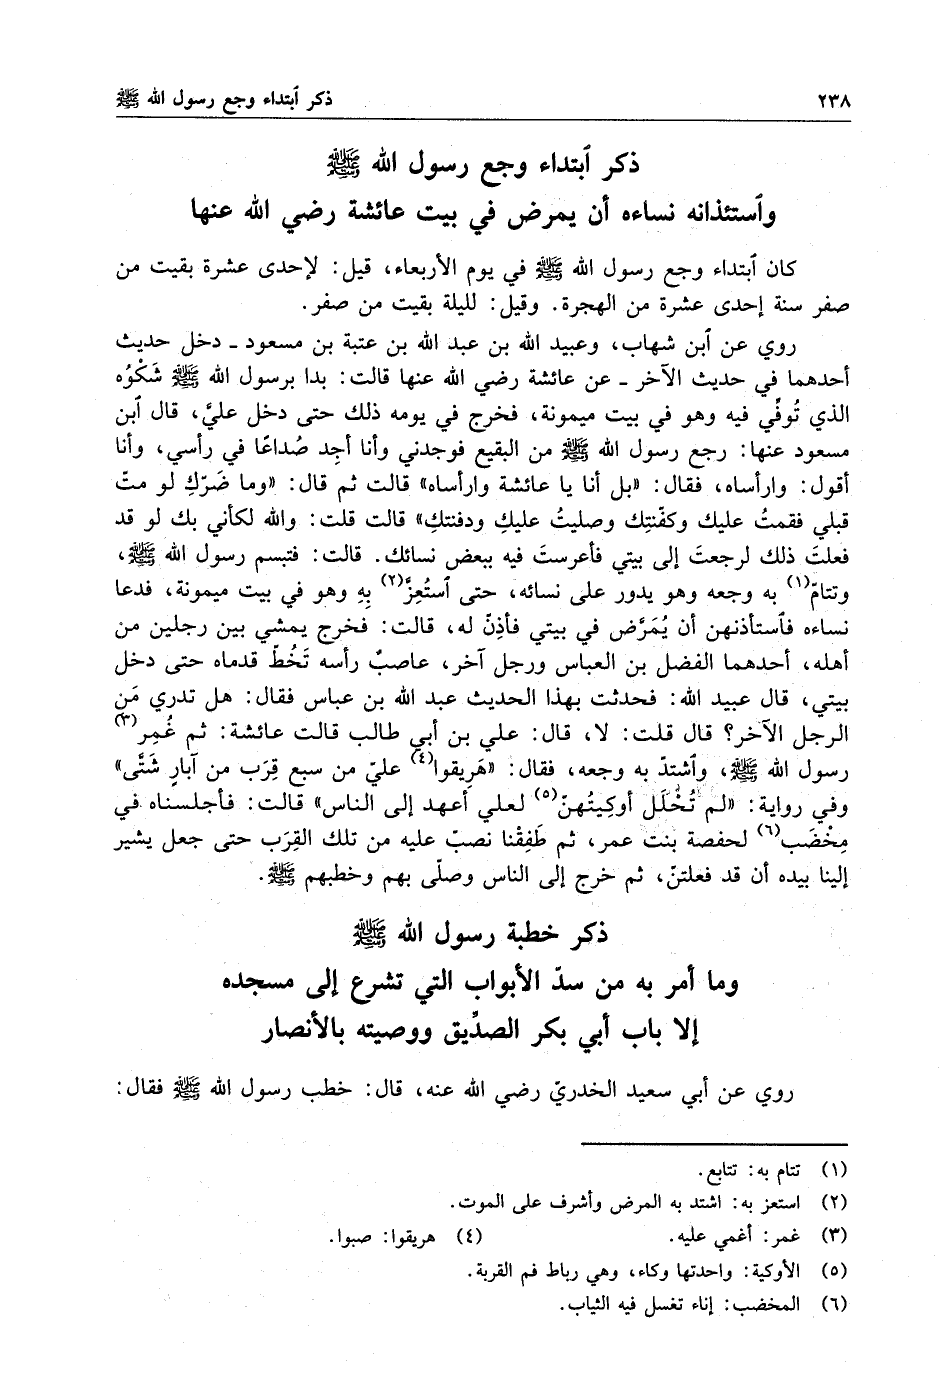 ٢٣٨ ذكر ٱبتداء وجع رسول الله ﷺ
ذكر ٱبتداء وجع رسول الله ﷺ
وٱستئذانه نساءه أن يمرض في بيت عائشة رضي الله عنها
كان ٱبتداء وجع رسول الله ﷺ في يوم الأربعاء، قيل: لإحدى عشرة بقيت من
صفر سنة إحدى عشرة من الهجرة. وقيل: لليلة بقيت من صفر.
روي عن ٱبن شهاب، وعبيد الله بن عبد الله بن عتبة بن مسعود ـ دخل حديث
أحدهما في حديث الآخر ـ عن عائشة رضي الله عنها قالت: بدا برسول الله ﷺ شَكْوُه
الذي تُوفِّي فيه وهو في بيت ميمونة، فخرج في يومه ذلك حتى دخل عليَّ، قال ٱبن
مسعود عنها: رجع رسول الله ﷺ من البقيع فوجدني وأنا أجِد صُداعًا في رأسي، وأنا
أقول: وارأساه، فقال: «بل أنا يا عائشة وارأساه» قالت ثم قال: «وما ضَرّكِ لو متّ
قبلي فقمتُ عليك وكفّنتِك وصليتُ عليكِ ودفنتكِ» قالت قلت: والله لكأني بك لو قد
فعلتَ ذلك لرجعتَ إلى بيتي فأعرستَ فيه ببعض نسائك. قالت: فتبسم رسول الله ﷺ،
وتتامّ(١) به وجعه وهو يدور على نسائه، حتى ٱستُعِزَّ(٢) بِهِ وهو في بيت ميمونة، فدعا
نساءه فٱستأذنهن أن يُمَرَّض في بيتي فأذِنّ له، قالت: فخرج يمشي بين رجلين من
أهله، أحدهما الفضل بن العباس ورجل آخر، عاصبٌ رأسه تَخُطّ قدماه حتى دخل
بيتي، قال عبيد الله: فحدثت بهذا الحديث عبد الله بن عباس فقال: هل تدري مَن
الرجل الآخر؟ قال قلت: لا، قال: علي بن أبي طالب قالت عائشة: ثم غُمِر(٣)
رسول الله ﷺ، وٱشتدّ به وجعه، فقال: «هَرِيقوا(٤) عليّ من سبع قِرَب من آبارٍ شَتَّى»
وفي رواية: «لم تُحْلَل أوكِيتُهنّ(٥) لعلي أعهد إلى الناس» قالت: فأجلسناه في
مِخْضَب(٦) لحفصة بنت عمر، ثم طَفِقْنا نصبّ عليه من تلك القِرَب حتى جعل يشير
إلينا بيده أن قد فعلتنّ، ثم خرج إلى الناس وصلّى بهم وخطبهم ﷺ.
ذكر خطبة رسول الله ﷺ
وما أمر به من سدّ الأبواب التي تشرع إلى مسجده
إلا باب أبي بكر الصدِّيق ووصيته بالأنصار
روي عن أبي سعيد الخدريّ رضي الله عنه، قال: خطب رسول الله ﷺ فقال:
(١) تتام به: تتابع.
(٢) استعز به: اشتد به المرض وأشرف على الموت.
(٣) غمر: أغمي عليه. (٤) هريقوا: صبوا.
(٥) الأوكية: واحدتها وكاء، وهي رباط فم القربة.
(٦) المخضب: إناء تغسل فيه الثياب.